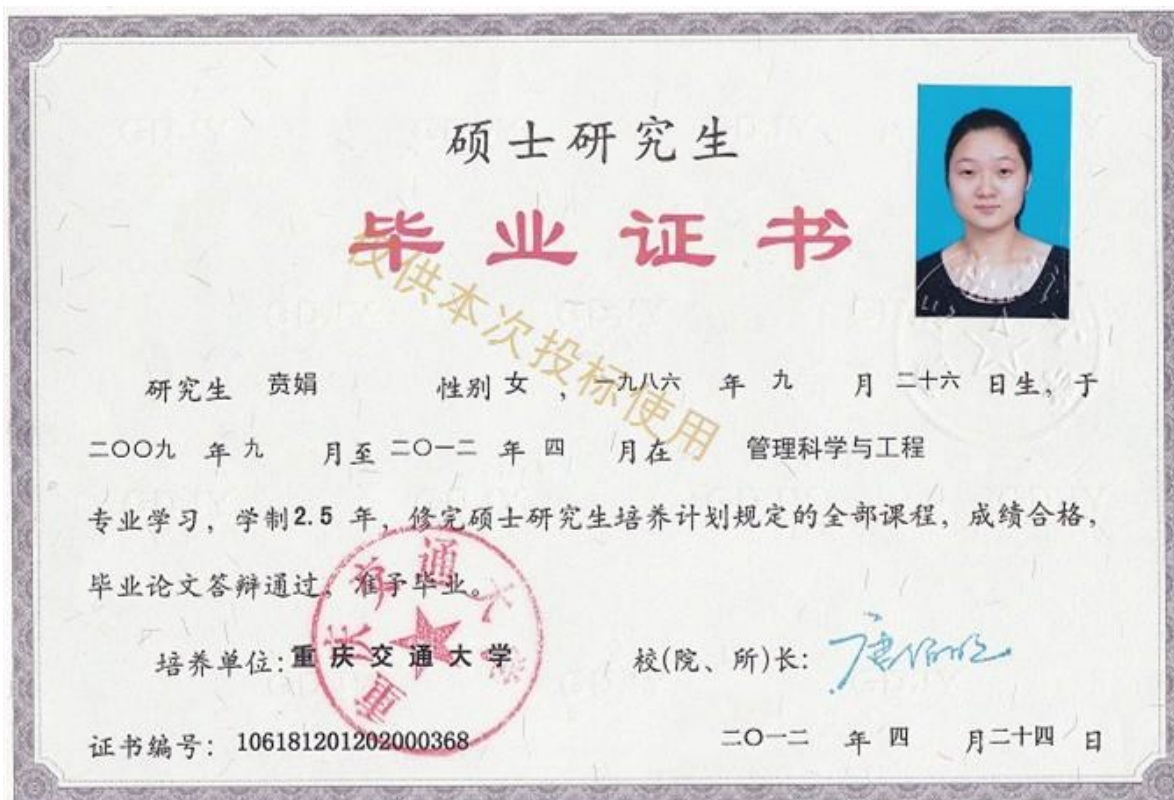 硕士研究生
毕业证书
仅供本次投标使用
研究生 贲娟 性别 女 , 一九八六 年 九 月 二十六 日生, 于
二〇〇九 年 九 月至 二〇一二 年 四 月在 管理科学与工程
专业学习, 学制2.5 年, 修完硕士研究生培养计划规定的全部课程, 成绩合格,
毕业论文答辩通过, 准予毕业。
重庆交通大学
培养单位: 重庆交通大学 校(院、所)长: 唐伯明
证书编号: 106181201202000368 二〇一二 年 四 月二十四 日